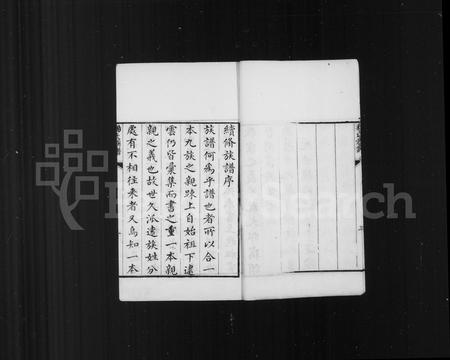 續脩族譜序
族譜何爲乎譜也者所以合一
本九族之親踈上自始祖下逮
雲仍皆彙集而書之重一本親
親之義也故世久派遠族姓分
處有不相往来者又烏知一本